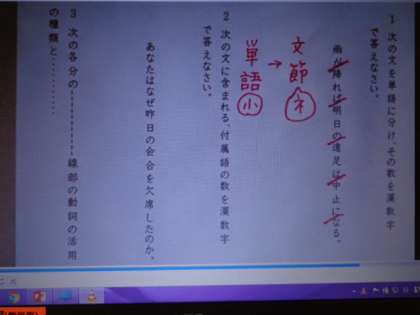 1 次の文を単語に分け、その数を漢数字
で答えなさい。
雨が降れば明日の遠足は中止になる。
文節
→
単語 小
2 次の文に含まれる、付属語の数を漢数字
で答えなさい。
あなたはなぜ昨日の会合を欠席したのか。
3 次の各分の-----------線部の動詞の活用
の種類と………